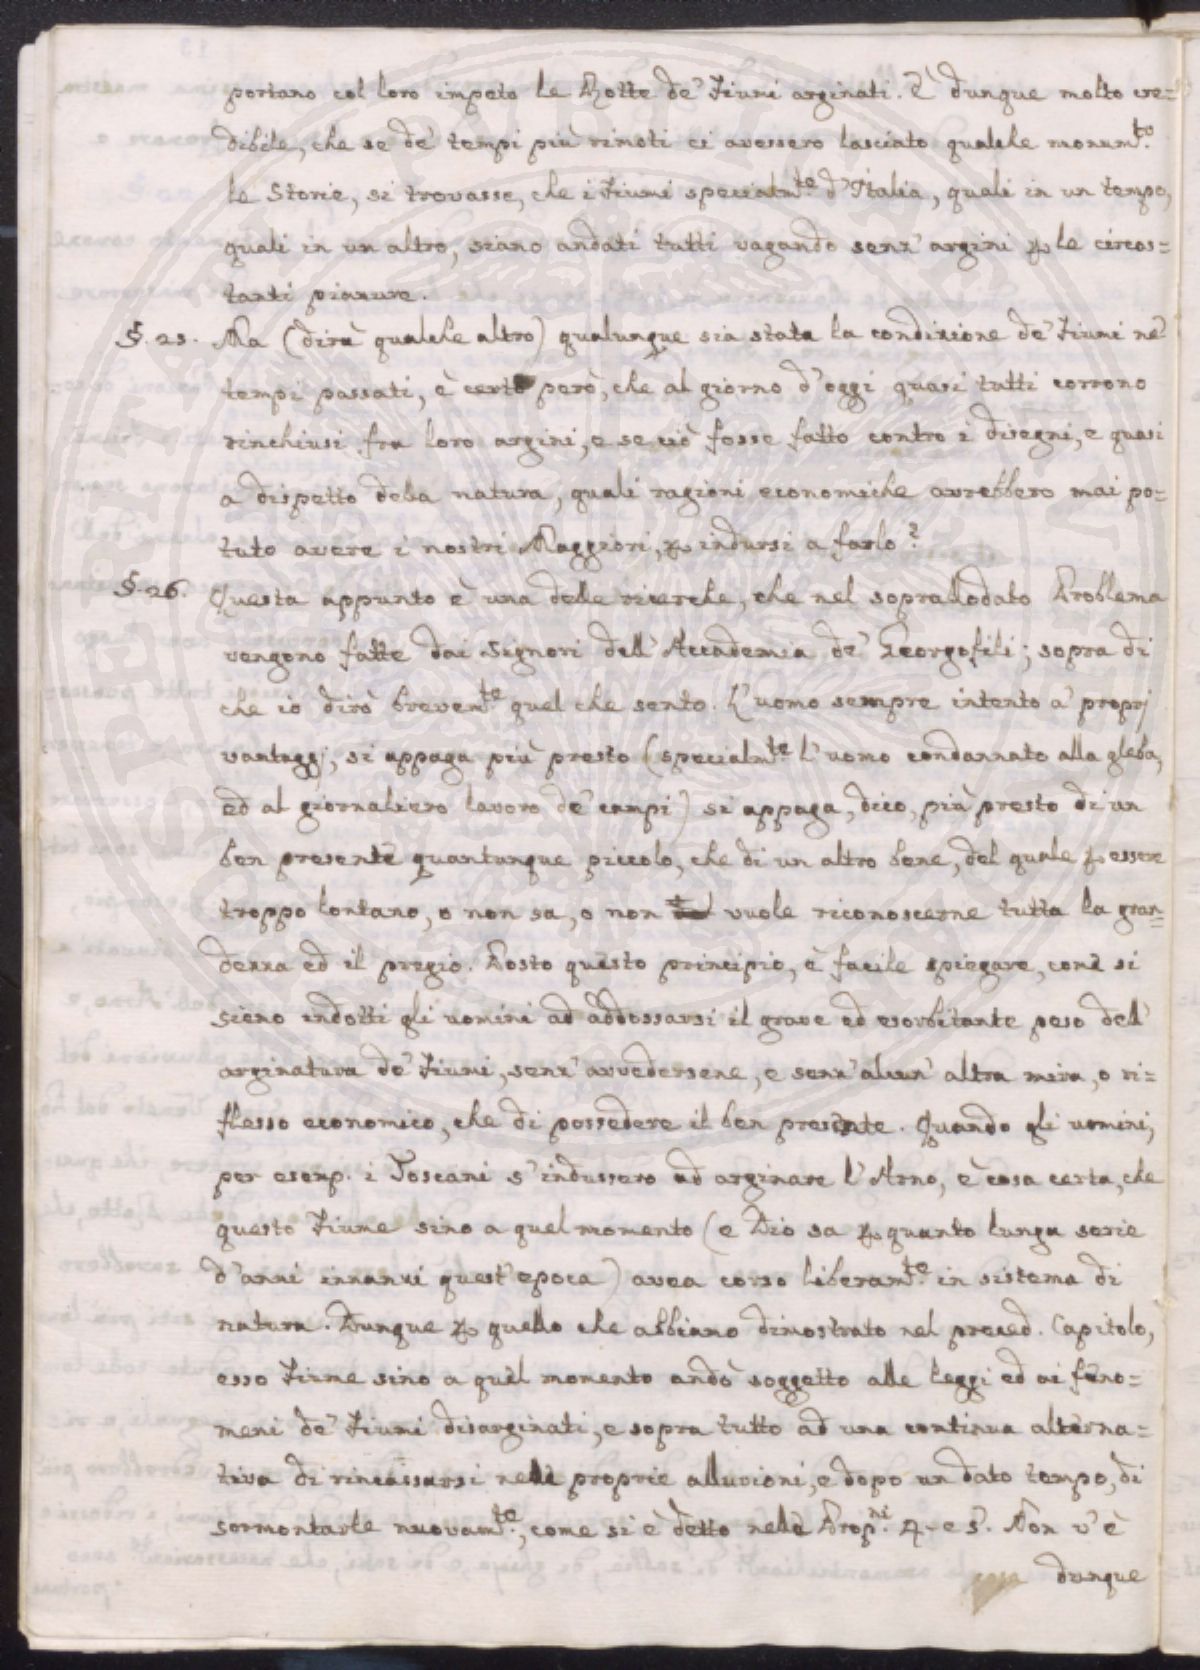 portano col loro impeto le Rotte de' Fiumi arginati. È dunque molto cre=
dibile, che se de' tempi più rimoti ci avessero lasciato qualche monum.to
le Storie, si trovasse, che i Fiumi specialm.te d'Italia, quali in un tempo,
quali in un altro, siano andati tutti vagando senz' argini ꝑ le circos=
tanti pianure.
§. 25. Ma (dirà qualche altro) qualunque sia stata la condizione de' Fiumi ne'
tempi passati, è certo però, che al giorno d'oggi quasi tutti corrono
rinchiusi fra loro argini, e se ciò fosse fatto contro i disegni, e quasi
a dispetto della natura, quali ragioni economiche avrebbero mai po=
tuto avere i nostri Maggiori, ꝑ indursi a farlo?
§. 26. Questa appunto è una delle ricerche, che nel soprallodato Problema
vengono fatte dai Signori dell' Accademia de' Georgofili; sopra di
che io dirò brevem.te quel che sento. L'uomo sempre intento a' proprj
vantaggj, si appaga più presto (specialm.te l'uomo condannato alla gleba,
ed al giornaliero lavoro de' campi) si appaga, dico, più presto di un
ben presente quantunque piccolo, che di un altro bene, del quale ꝑ essere
troppo lontano, o non sa, o non vuole riconoscerne tutta la gran=
dezza ed il pregio. Posto questo principio, è facile spiegare, come si
sieno indotti gli uomini ad addossarsi il grave ed esorbitante peso dell'
arginatura de' Fiumi, senz' avvedersene, e senz' alcun' altra mira, o ri=
flesso economico, che di possedere il ben presente. Quando gli uomini,
per esemp. i Toscani s' indussero ad arginare l'Arno, è cosa certa, che
questo Fiume sino a quel momento (e Dio sa ꝑ quanto lunga serie
d'anni innanzi quest' epoca) avea corso liberam.te in sistema di
natura. Dunque ꝑ quello che abbiamo dimostrato nel preced. Capitolo,
esso Fiume sino a quel momento andò soggetto alle leggi ed ai feno=
meni de' Fiumi disarginati, e sopra tutto ad una continua alterna=
tiva di rincassarsi nelle proprie alluvioni, e dopo un dato tempo, di
sormontarle nuovam.te, come si è detto nelle Prop.ni 4. e 5. Non v'è
dunque